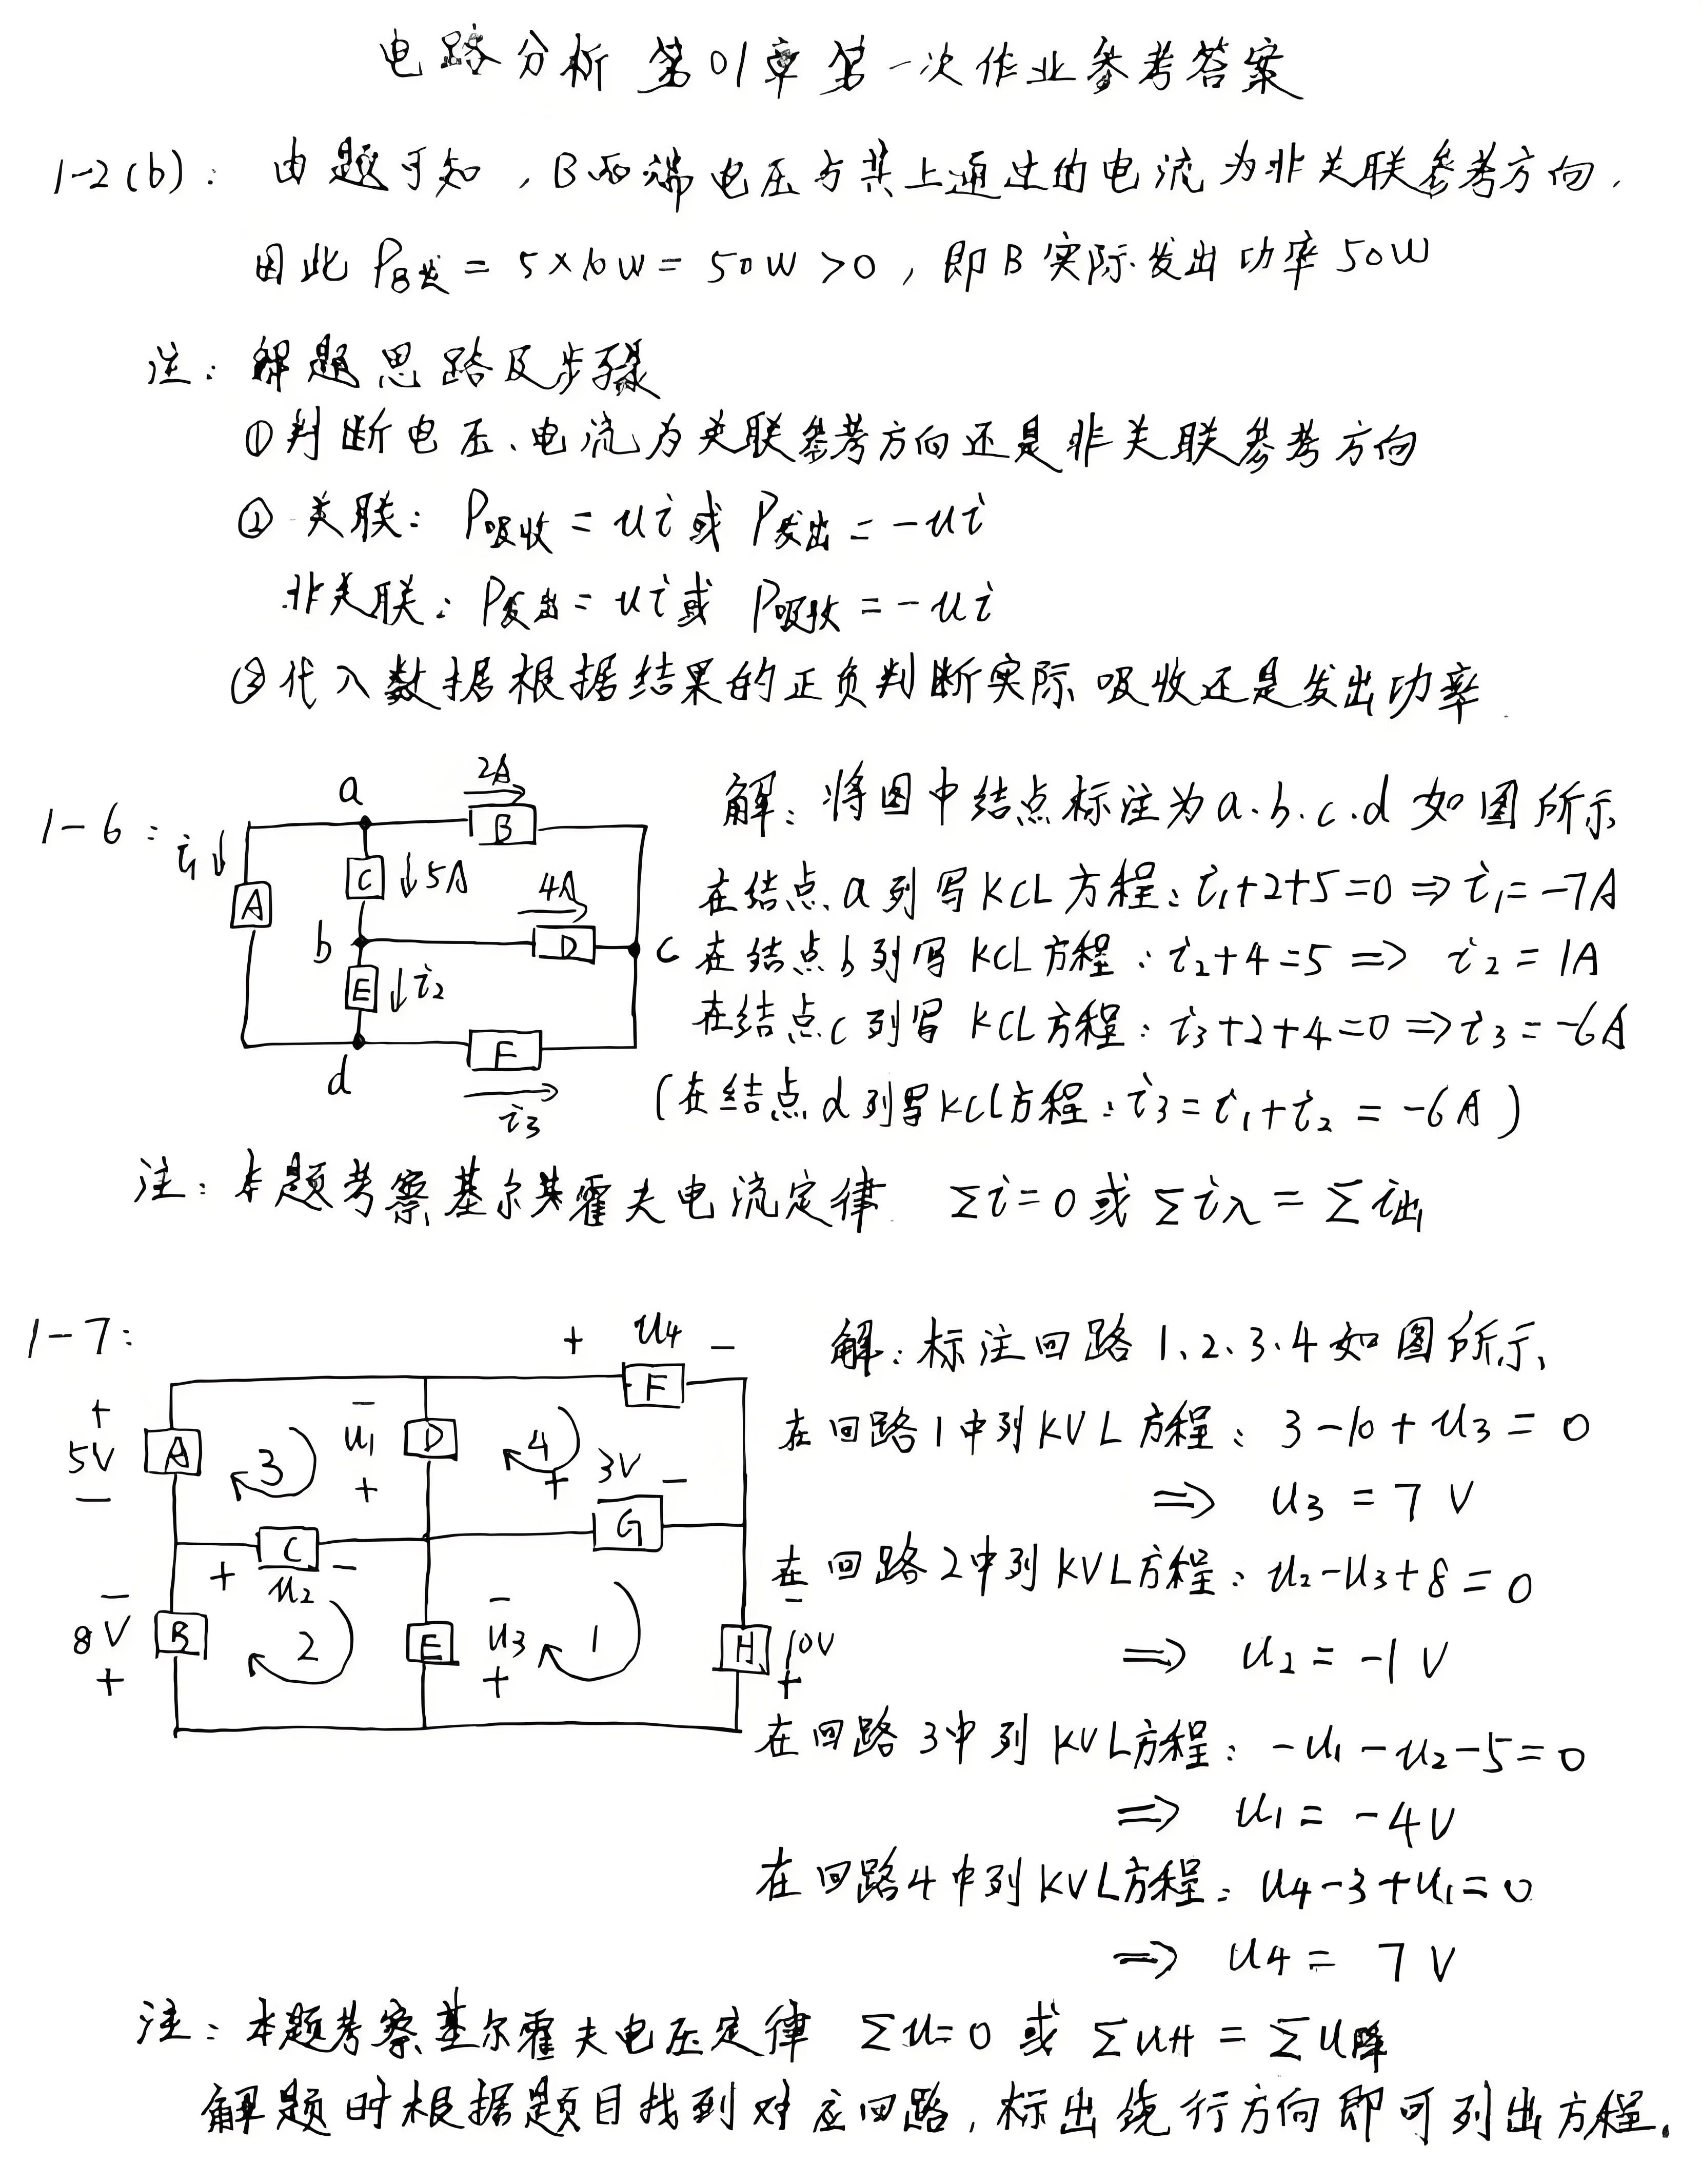 电路分析 第01章第一次作业参考答案
1-2(b): 由题可知,B两端电压与其上通过的电流为非关联参考方向.
因此 P_B发 = 5×10W = 50W >0, 即B实际发出功率50W
注: 解题思路及步骤
①判断电压、电流为关联参考方向还是非关联参考方向
② 关联: P吸收 = ui 或 P发出 = -ui
非关联: P发出 = ui 或 P吸收 = -ui
③代入数据根据结果的正负判断实际吸收还是发出功率
1-6:
i₁↓
a
2A
B
A
C
↓5A
4A
b
D
c
E
↓i₂
d
F
i₃
解: 将图中结点标注为a.b.c.d 如图所示
在结点a列写KCL方程: i₁+2+5=0 ⇒ i₁=-7A
在结点b列写KCL方程: i₂+4=5 ⇒ i₂=1A
在结点c列写KCL方程: i₃+2+4=0 ⇒ i₃=-6A
(在结点d列写KCL方程: i₃=i₁+i₂ = -6A)
注: 本题考察基尔其霍夫电流定律 Σi=0 或 Σi入 = Σi出
1-7:
+ u₄ -
F
+ 5V -
A
3
- u₁ +
D
4
+ 3V -
G
C
+ u₂ -
- 8V +
B
2
E
- u₃ +
1
H
- 10V +
解: 标注回路1、2、3、4如图所示、
在回路1中列KVL方程: 3-10+u₃=0
⇒ u₃ = 7 V
在回路2中列KVL方程: u₂-u₃+8=0
⇒ u₂ = -1 V
在回路3中列KVL方程: -u₁-u₂-5=0
⇒ u₁ = -4V
在回路4中列KVL方程: u₄-3+u₁=0
⇒ u₄ = 7 V
注: 本题考察基尔霍夫电压定律 Σu=0 或 Σu升 = Σu降
解题时根据题目找到对应回路, 标出绕行方向即可列出方程.